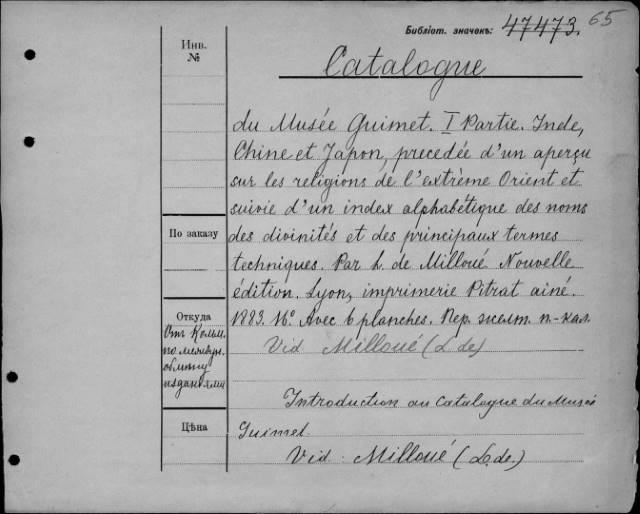 Библіот. значекъ: 47473. 65
Инв.
№
Catalogue
du Musée Guimet. I Partie. Inde,
Chine et Japon, precedée d'un aperçu
sur les religions de l'extrème Orient et
suivie d'un index alphabétique des noms
По заказу
des divinités et des principaux termes
techniques. Par L. de Milloué Nouvelle
édition. Lyon, imprimerie Pitrat ainé.
Откуда
1883. 16°. Avec 6 planches. Пер. желт. п-кал.
Отъ
по
обмѣну
изданіями
Vid Milloué (L de)
Introduction au Catalogue du Musée
Цѣна
Guimet.
Vid. Milloué (L. de.)